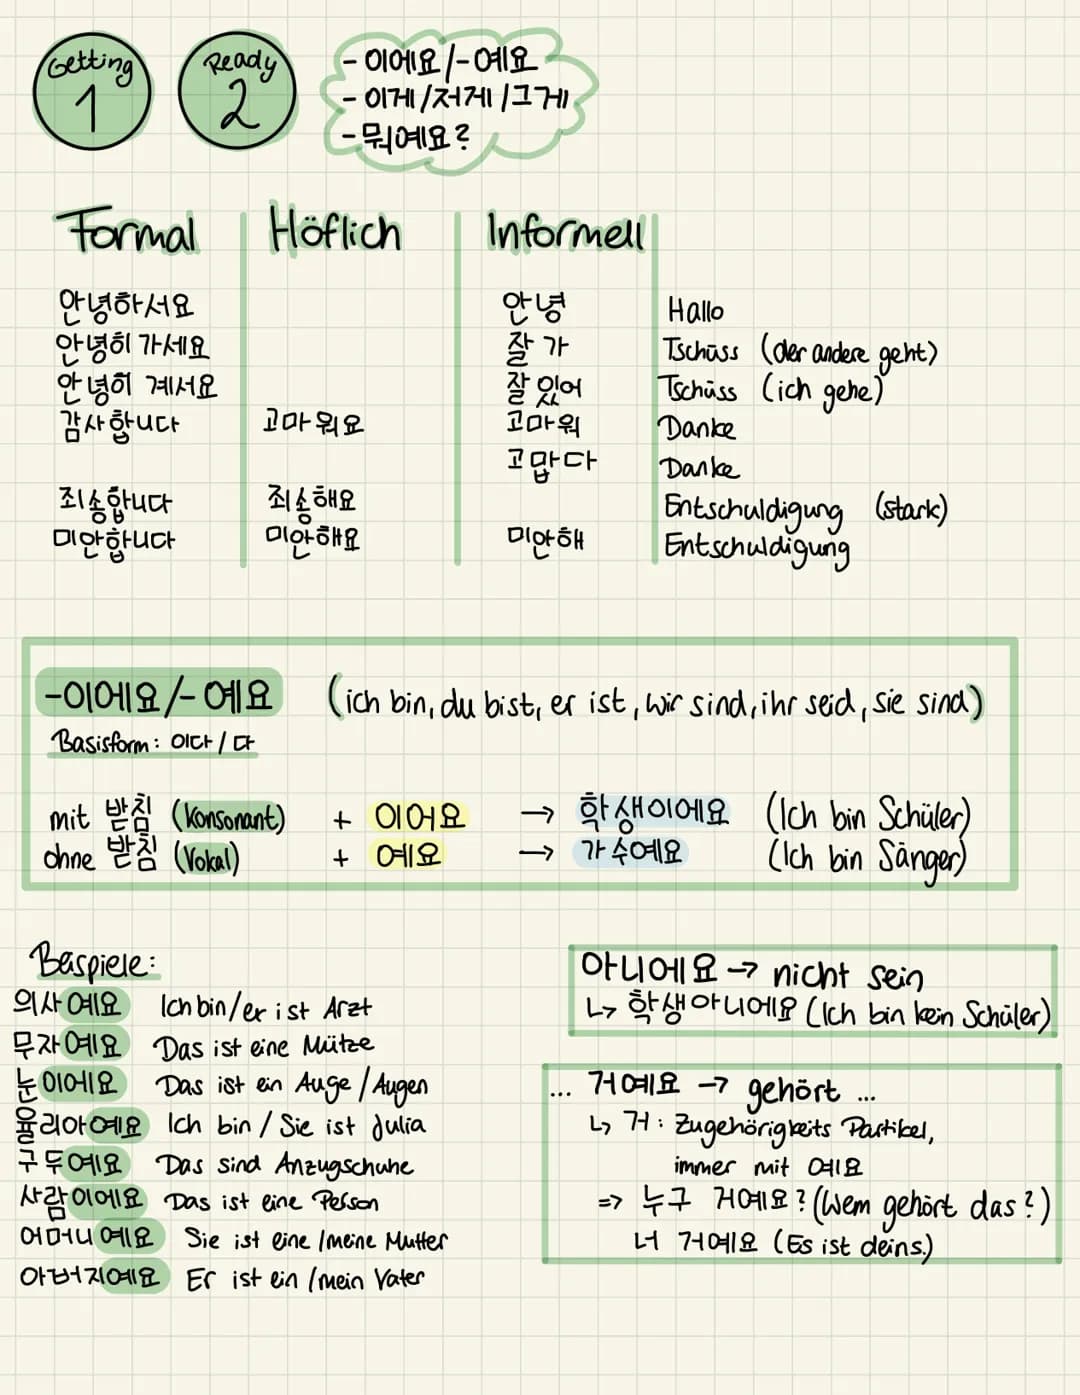 Getting 1
Ready 2
- 이에요/-예요
- 이게/저게/그게
- 뭐예요?
Formal Höflich Informell
안녕하서요 안녕 Hallo
안녕히 가세요 잘 가 Tschüss (der andere geht)
안녕히 계서요 잘 있어 Tschüss (ich gehe)
감사합니다 고마워요 고마워 Danke
고맙다 Danke
죄송합니다 죄송해요 Entschuldigung (stark)
미안합니다 미안해요 미안해 Entschuldigung
-이에요/-예요 (ich bin, du bist, er ist, wir sind, ihr seid, sie sind)
Basisform: 이다/다
mit 받침 (Konsonant) + 이어요 → 학생이에요 (Ich bin Schüler)
ohne 받침 (Vokal) + 예요 → 가수예요 (Ich bin Sänger)
Beispiele:
의사예요 Ich bin/er ist Arzt
무자예요 Das ist eine Mütze
눈이에요 Das ist ein Auge/Augen
율리아예요 Ich bin/Sie ist Julia
구두예요 Das sind Anzugschuhe
사람이에요 Das ist eine Person
어머니예요 Sie ist eine/meine Mutter
아버지예요 Er ist ein/mein Vater
아니에요 → nicht sein
↳ 학생아니에요 (Ich bin kein Schüler)
... 거예요 → gehört ...
↳ 거: Zugehörigkeits Partikel,
immer mit 예요
⇒ 누구 거예요? (Wem gehört das?)
너 거예요 (Es ist deins.)